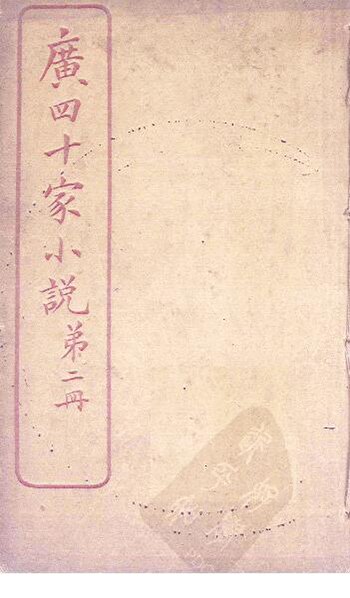 廣四十家小説第二冊